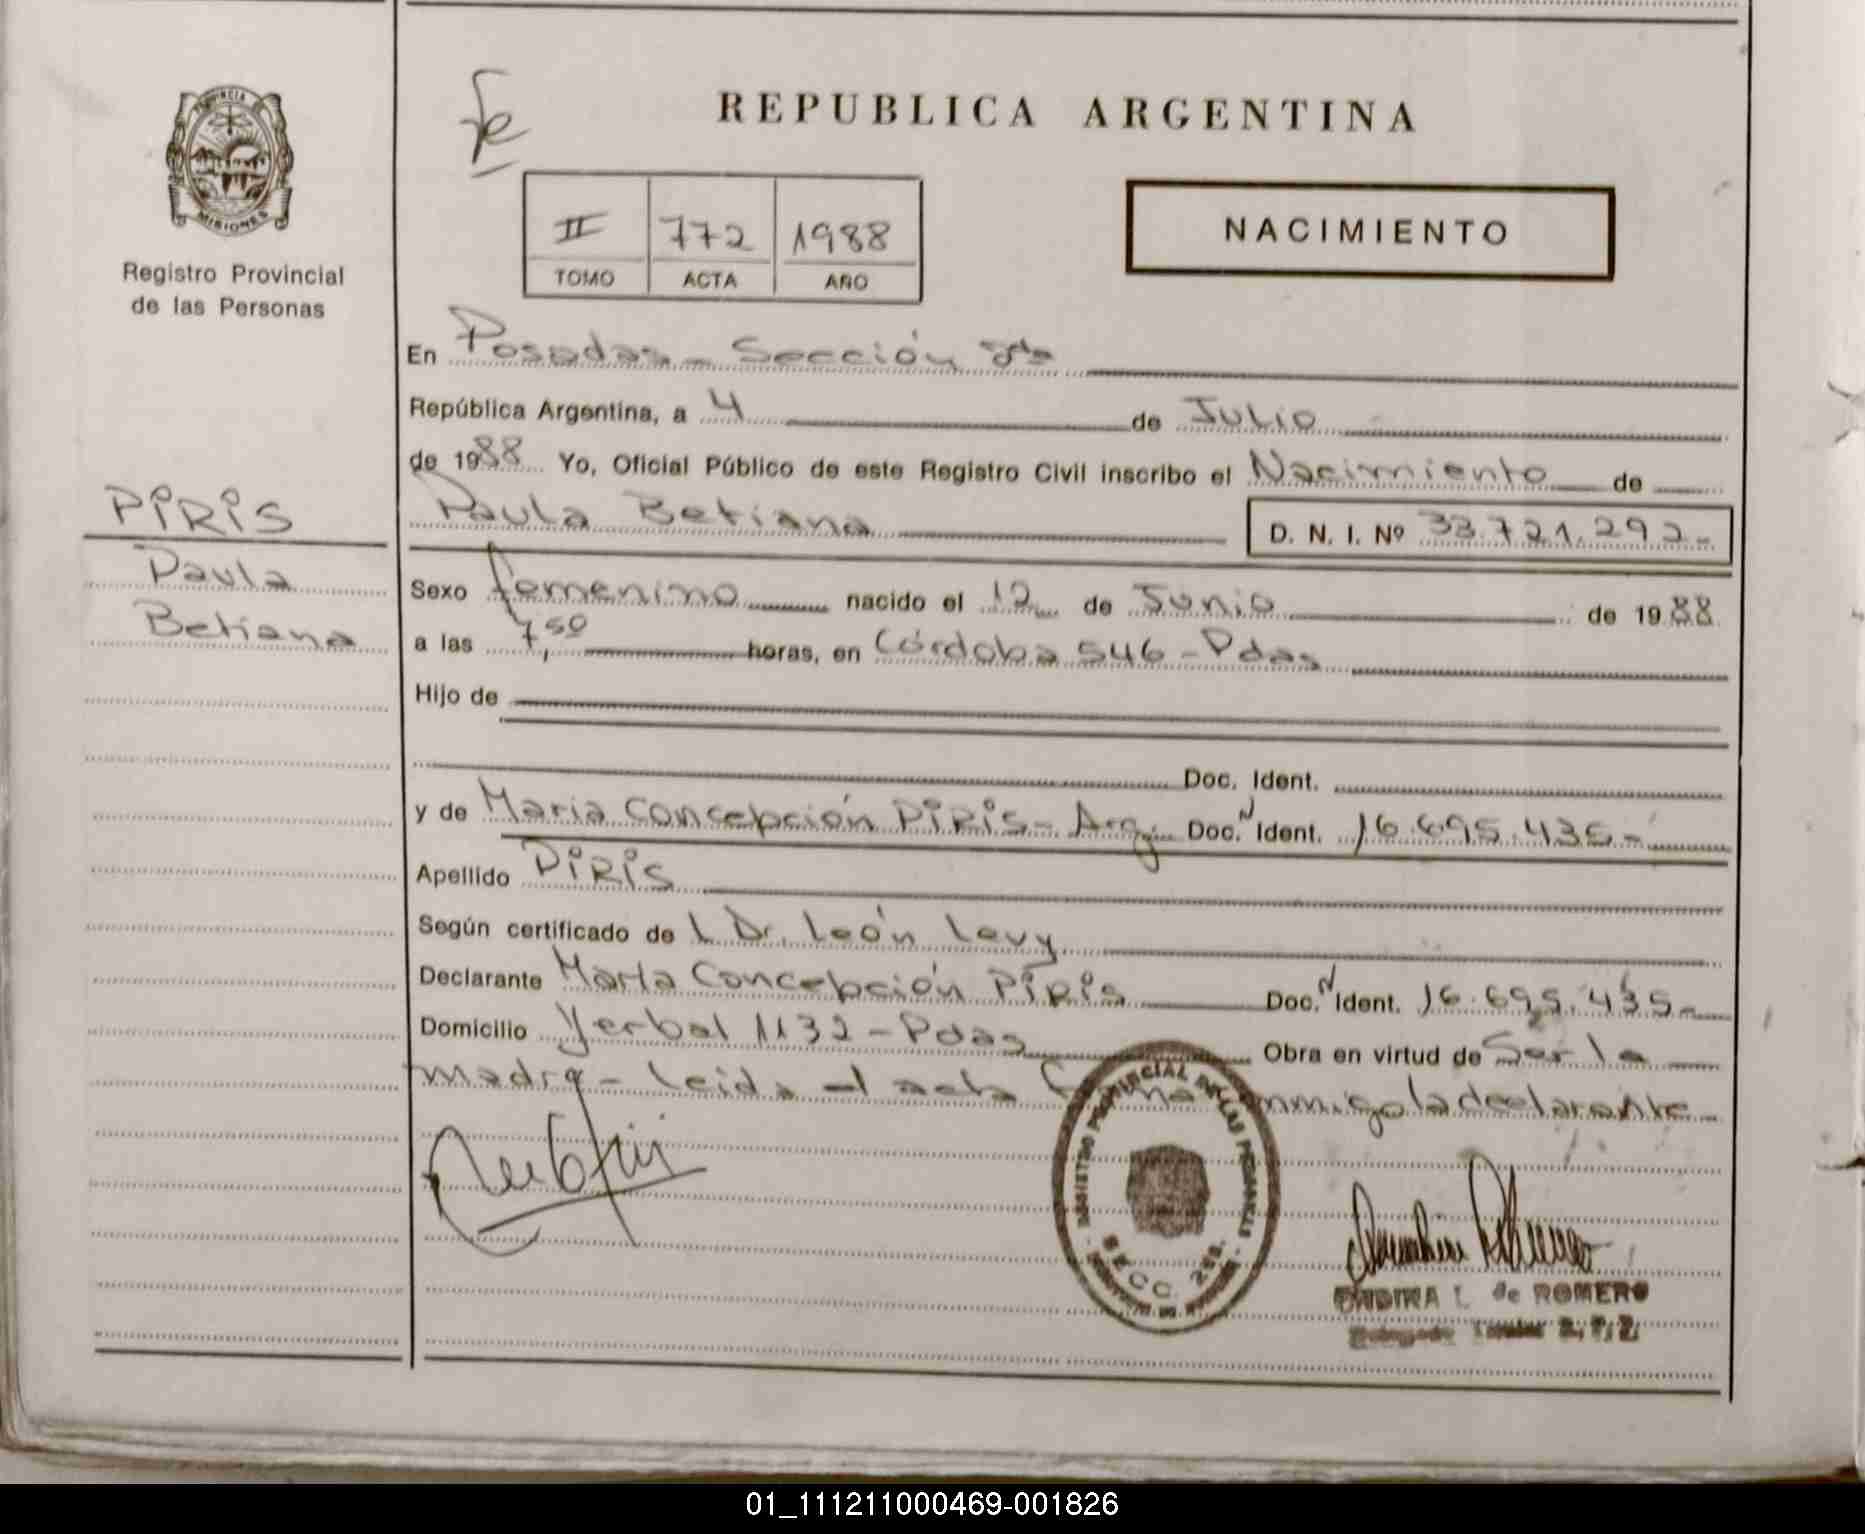 REPUBLICA ARGENTINA
PROVINCIA DE
MISIONES
Registro Provincial
de las Personas
II 772 1988
TOMO ACTA AÑO
NACIMIENTO
En Posadas - Sección 2da
República Argentina, a 4 de Julio
de 1988 Yo, Oficial Público de este Registro Civil inscribo el Nacimiento de
Paula Betiana D. N. I. Nº 33.721.292-
PIRIS
Paula
Betiana
Sexo femenino nacido el 12 de Junio de 1988
a las 7,50 horas, en Córdoba 546 - Pdas
Hijo de
Doc. Ident.
y de Maria Concepción PIRIS - Arg. Doc. Ident. 16.695.435-
Apellido PIRIS
Según certificado de l Dr. León Levy
Declarante María Concepción Piris Doc. Ident. 16.695.435-
Domicilio Yerbal 1132 - Pdas Obra en virtud de Ser la
madre - Leida el acta conmigo la declarante -
REGISTRO PROVINCIAL DE LAS PERSONAS
SECC. 2da.
L. de ROMERO
01_111211000469-001826